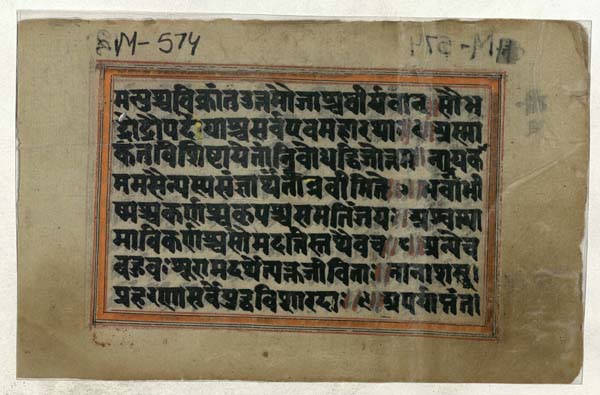 ƻM-574
मन्युश्चविक्रांतउत्तमौजाश्चवीर्यवान् सौभ
द्रोद्रौपदेयाश्चसर्वएवमहारथाः ॥ अस्मा
कंतुविशिष्टायेतान्निबोधद्विजोत्तम ॥ नायका
ममसैन्यस्यसंज्ञार्थंतान्ब्रवीमिते ॥ भवान्भी
ष्मश्चकर्णश्चकृपश्चसमितिंजयः ॥ अश्वत्था
माविकर्णश्चसौमदत्तिस्तथैवच ॥ अन्येच
बहवः शूरामदर्थेत्यक्तजीविताः ॥ नानाशस्त्र
प्रहरणाः सर्वेयुद्धविशारदाः ॥ अपर्याप्तंत